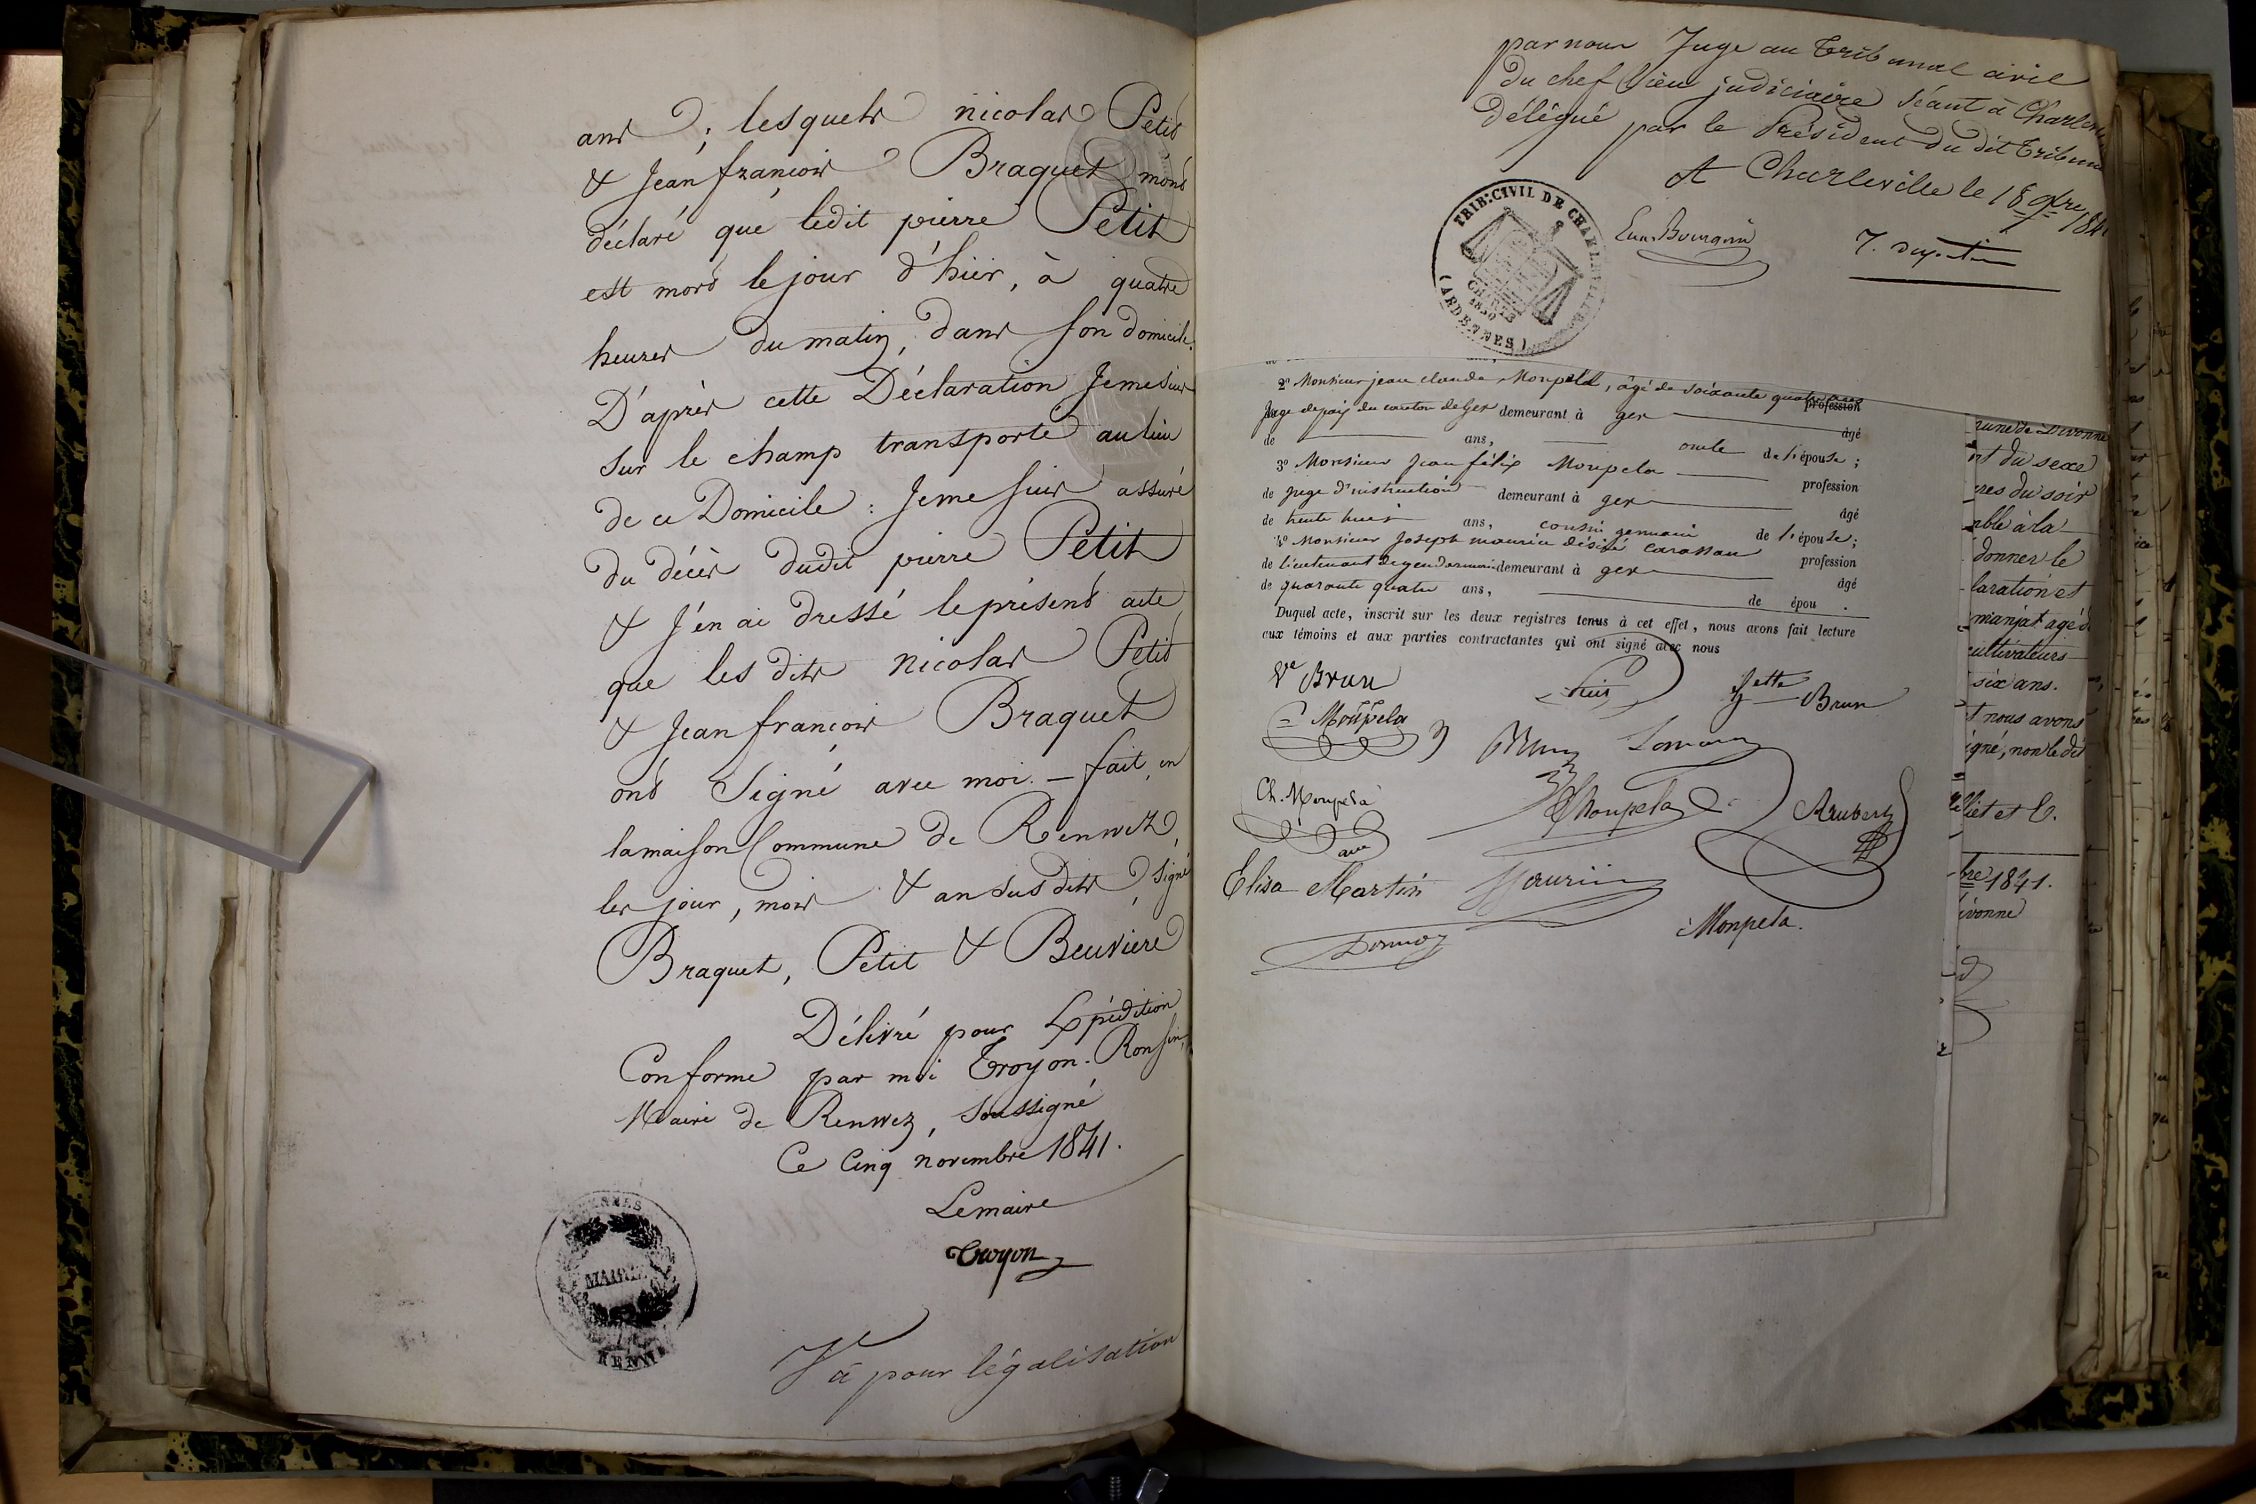 ans ; lesquels nicolas Petit
& Jean francois Braquet m'ont
déclaré que ledit pierre Petit
est mort le jour d'hier, à quatre
heures du matin, dans son domicile.
D'après cette Déclaration Je me suis
sur le champ transporté au lieu
de ce Domicile : Je me suis assuré
du décès dudit pierre Petit
& J'en ai dressé le présent acte
que les dits nicolas Petit
& Jean francois Braquet
ont Signé avec moi. — fait, en
la maison Commune de Renwez
les jour, mois & an susdits, Signé
Braquet, Petit & Beuviere
Délivré pour Expédition
Conforme par moi Troyon-Ronsin,
Maire de Renwez, Soussigné
Ce Cinq novembre 1841.
Lemaire
Troyon
ARDENNES
MAIRIE
Vû pour légalisation
par nous Juge au Tribunal civil
du chef lieu judiciaire séant à
délégué par le Président du dit
A Charleville le 18 9bre
TRIB: CIVIL DE
CHARTE
1830
(ARDENNES)
2º Monsieur jean claude Monpela, âgé de soixante quatre ans
profession
Juge de paix du canton de Gex demeurant à gex
âgé
de ans, oncle de l'épouse ;
3º Monsieur Jean félix Monpela
profession
de juge d'instruction demeurant à gex
âgé
de trente huit ans, cousin germain de l'épouse ;
4º Monsieur Joseph maurice désiré
profession
de lieutenant de gendarmerie demeurant à gex
âgé
de quarante quatre ans, de épou .
Duquel acte, inscrit sur les deux registres tenus à cet effet, nous avons fait lecture
aux témoins et aux parties contractantes qui ont signé avec nous
Ve Brun
Brun
Monpela
Ch. Monpela
Monpela
Elisa Martin
Monpela.
nt du sexe
res du soir
mble à la
donner le
laration et
cultivateurs
six ans.
t nous avons
bre 1841.